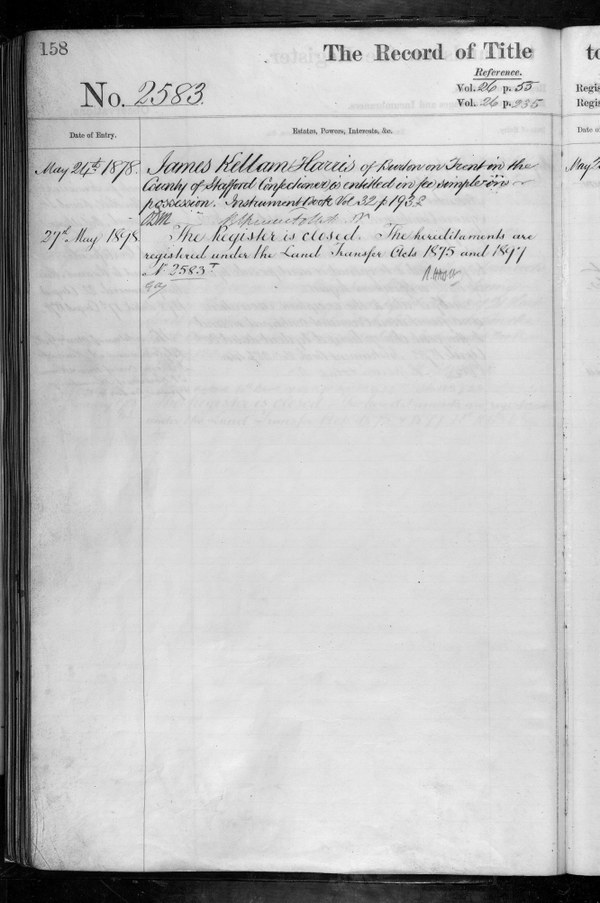 158
The Record of Title
Reference.
No. 2583.
Vol. 26 p. 55
Vol. 26 p. 235
Date of Entry.
Estates, Powers, Interests, &c.
May 24th 1878. James Kellam Harris of Burton on Trent in the
County of Stafford Confectioner is entitled in fee simple in
possession. Instrument Book Vol 32 p 193
27th May 1898 The Register is closed. The hereditaments are
registered under the Land Transfer Acts 1875 and 1897
No 2583 T
to
Regis
Regis
Date of
May